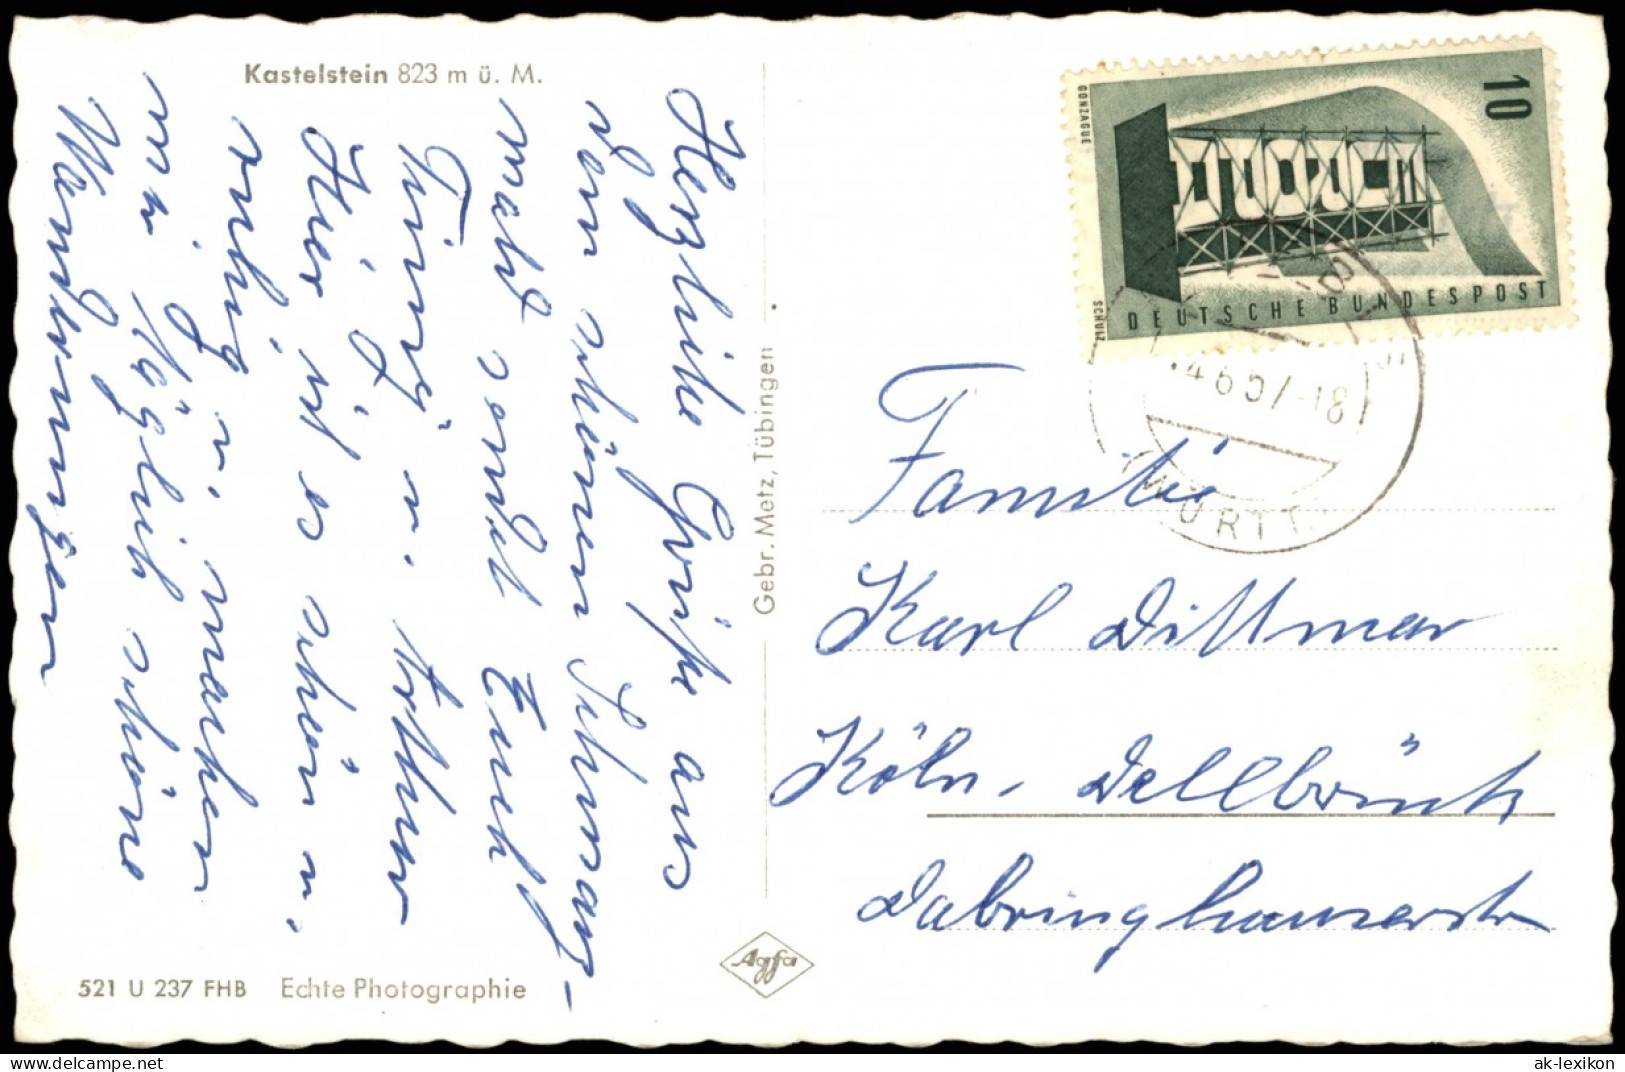 Kastelstein 823 m ü. M.
Herzliche Grüße aus
dem schönen Schwarz-
wald sendet Euch
u. Arthur
Hier ist es schön u.
ruhig, u. machen
wir täglich schöne
Wanderungen
521 U 237 FHB Echte Photographie
Gebr. Metz, Tübingen
Agfa
10
GONZAGUE
SCHUMZ
EUROPA
DEUTSCHE BUNDESPOST
4.6.57.-18
(WÜRTT
Familie
Karl Dittmar
Köln, Dellbrück
Dabringhauserstr
delcampe.net
ak-lexikon